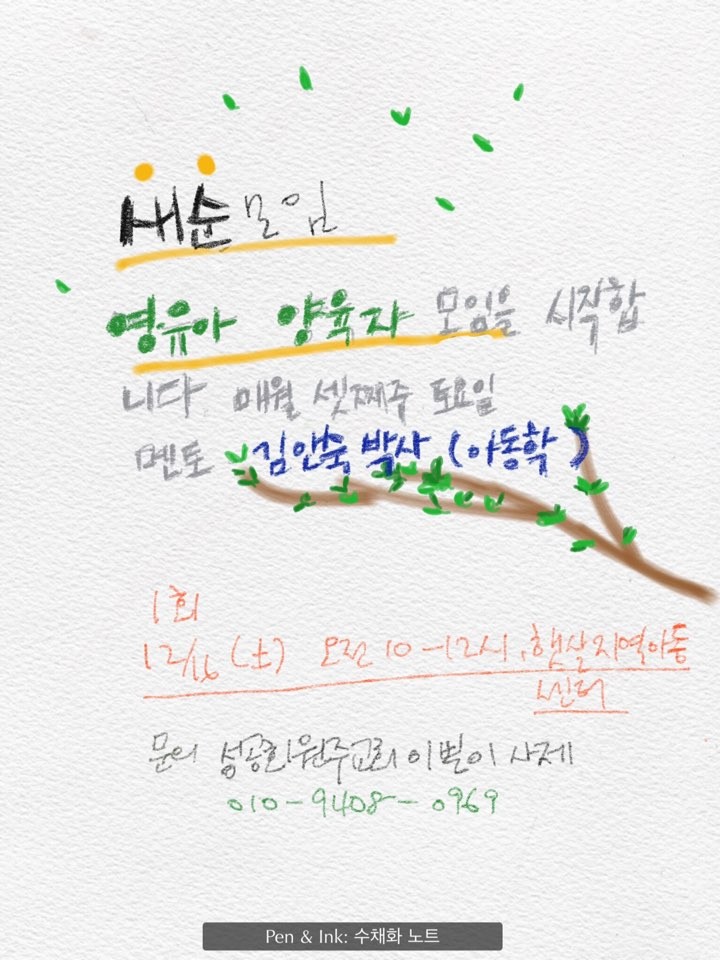 새순모임
영·유아 양육자 모임을 시작합
니다 매월 셋째주 토요일
멘토 김인숙 박사 (아동학)
1회
12/16 (土) 오전 10-12시, 햇살지역아동
센터
문의 성공회원주교회 이쁜이 사제
010-9408-0969
Pen & Ink: 수채화 노트